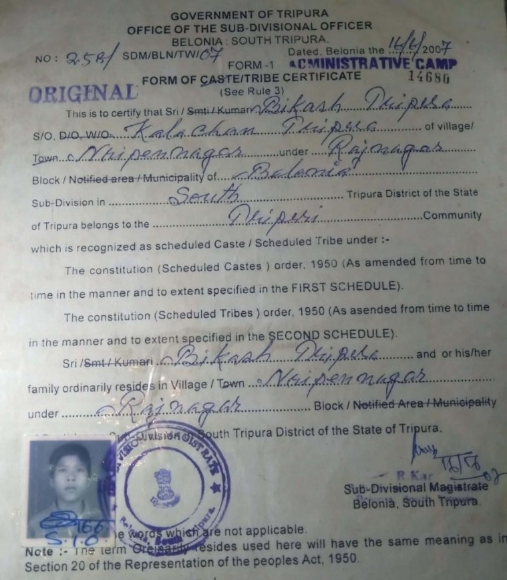 GOVERNMENT OF TRIPURA
OFFICE OF THE SUB-DIVISIONAL OFFICER
BELONIA: SOUTH TRIPURA.
NO: 258/ SDM/BLN/TW/07 Dated, Belonia the 16/6/2007
FORM -1 ADMINISTRATIVE CAMP
FORM OF CASTE/TRIBE CERTIFICATE 14680
ORIGINAL (See Rule 3)
This is to certify that Sri / Smti / Kumari Bikash Tripura
S/O, D/O, W/O Kalachan Tripura of village/
Town Nripennagar under Rajnagar
Block / Notified area / Municipality of Belonia
Sub-Division in South Tripura District of the State
of Tripura belongs to the Tripuri Community
which is recognized as scheduled Caste / Scheduled Tribe under :-
The constitution (Scheduled Castes ) order, 1950 (As amended from time to
time in the manner and to extent specified in the FIRST SCHEDULE).
The constitution (Scheduled Tribes ) order, 1950 (As asended from time to time
in the manner and to extent specified in the SECOND SCHEDULE).
Sri /Smt / Kumari Bikash Tripura and or his/her
family ordinarily resides in Village / Town Nripennagar
under Rajnagar Block / Notified Area / Municipality
South Tripura District of the State of Tripura.
R. Kar
Sub-Divisional Magistrate
Belonia, South Tripura.
the words which are not applicable.
Note :- The term Ordinarily resides used here will have the same meaning as in
Section 20 of the Representation of the peoples Act, 1950.